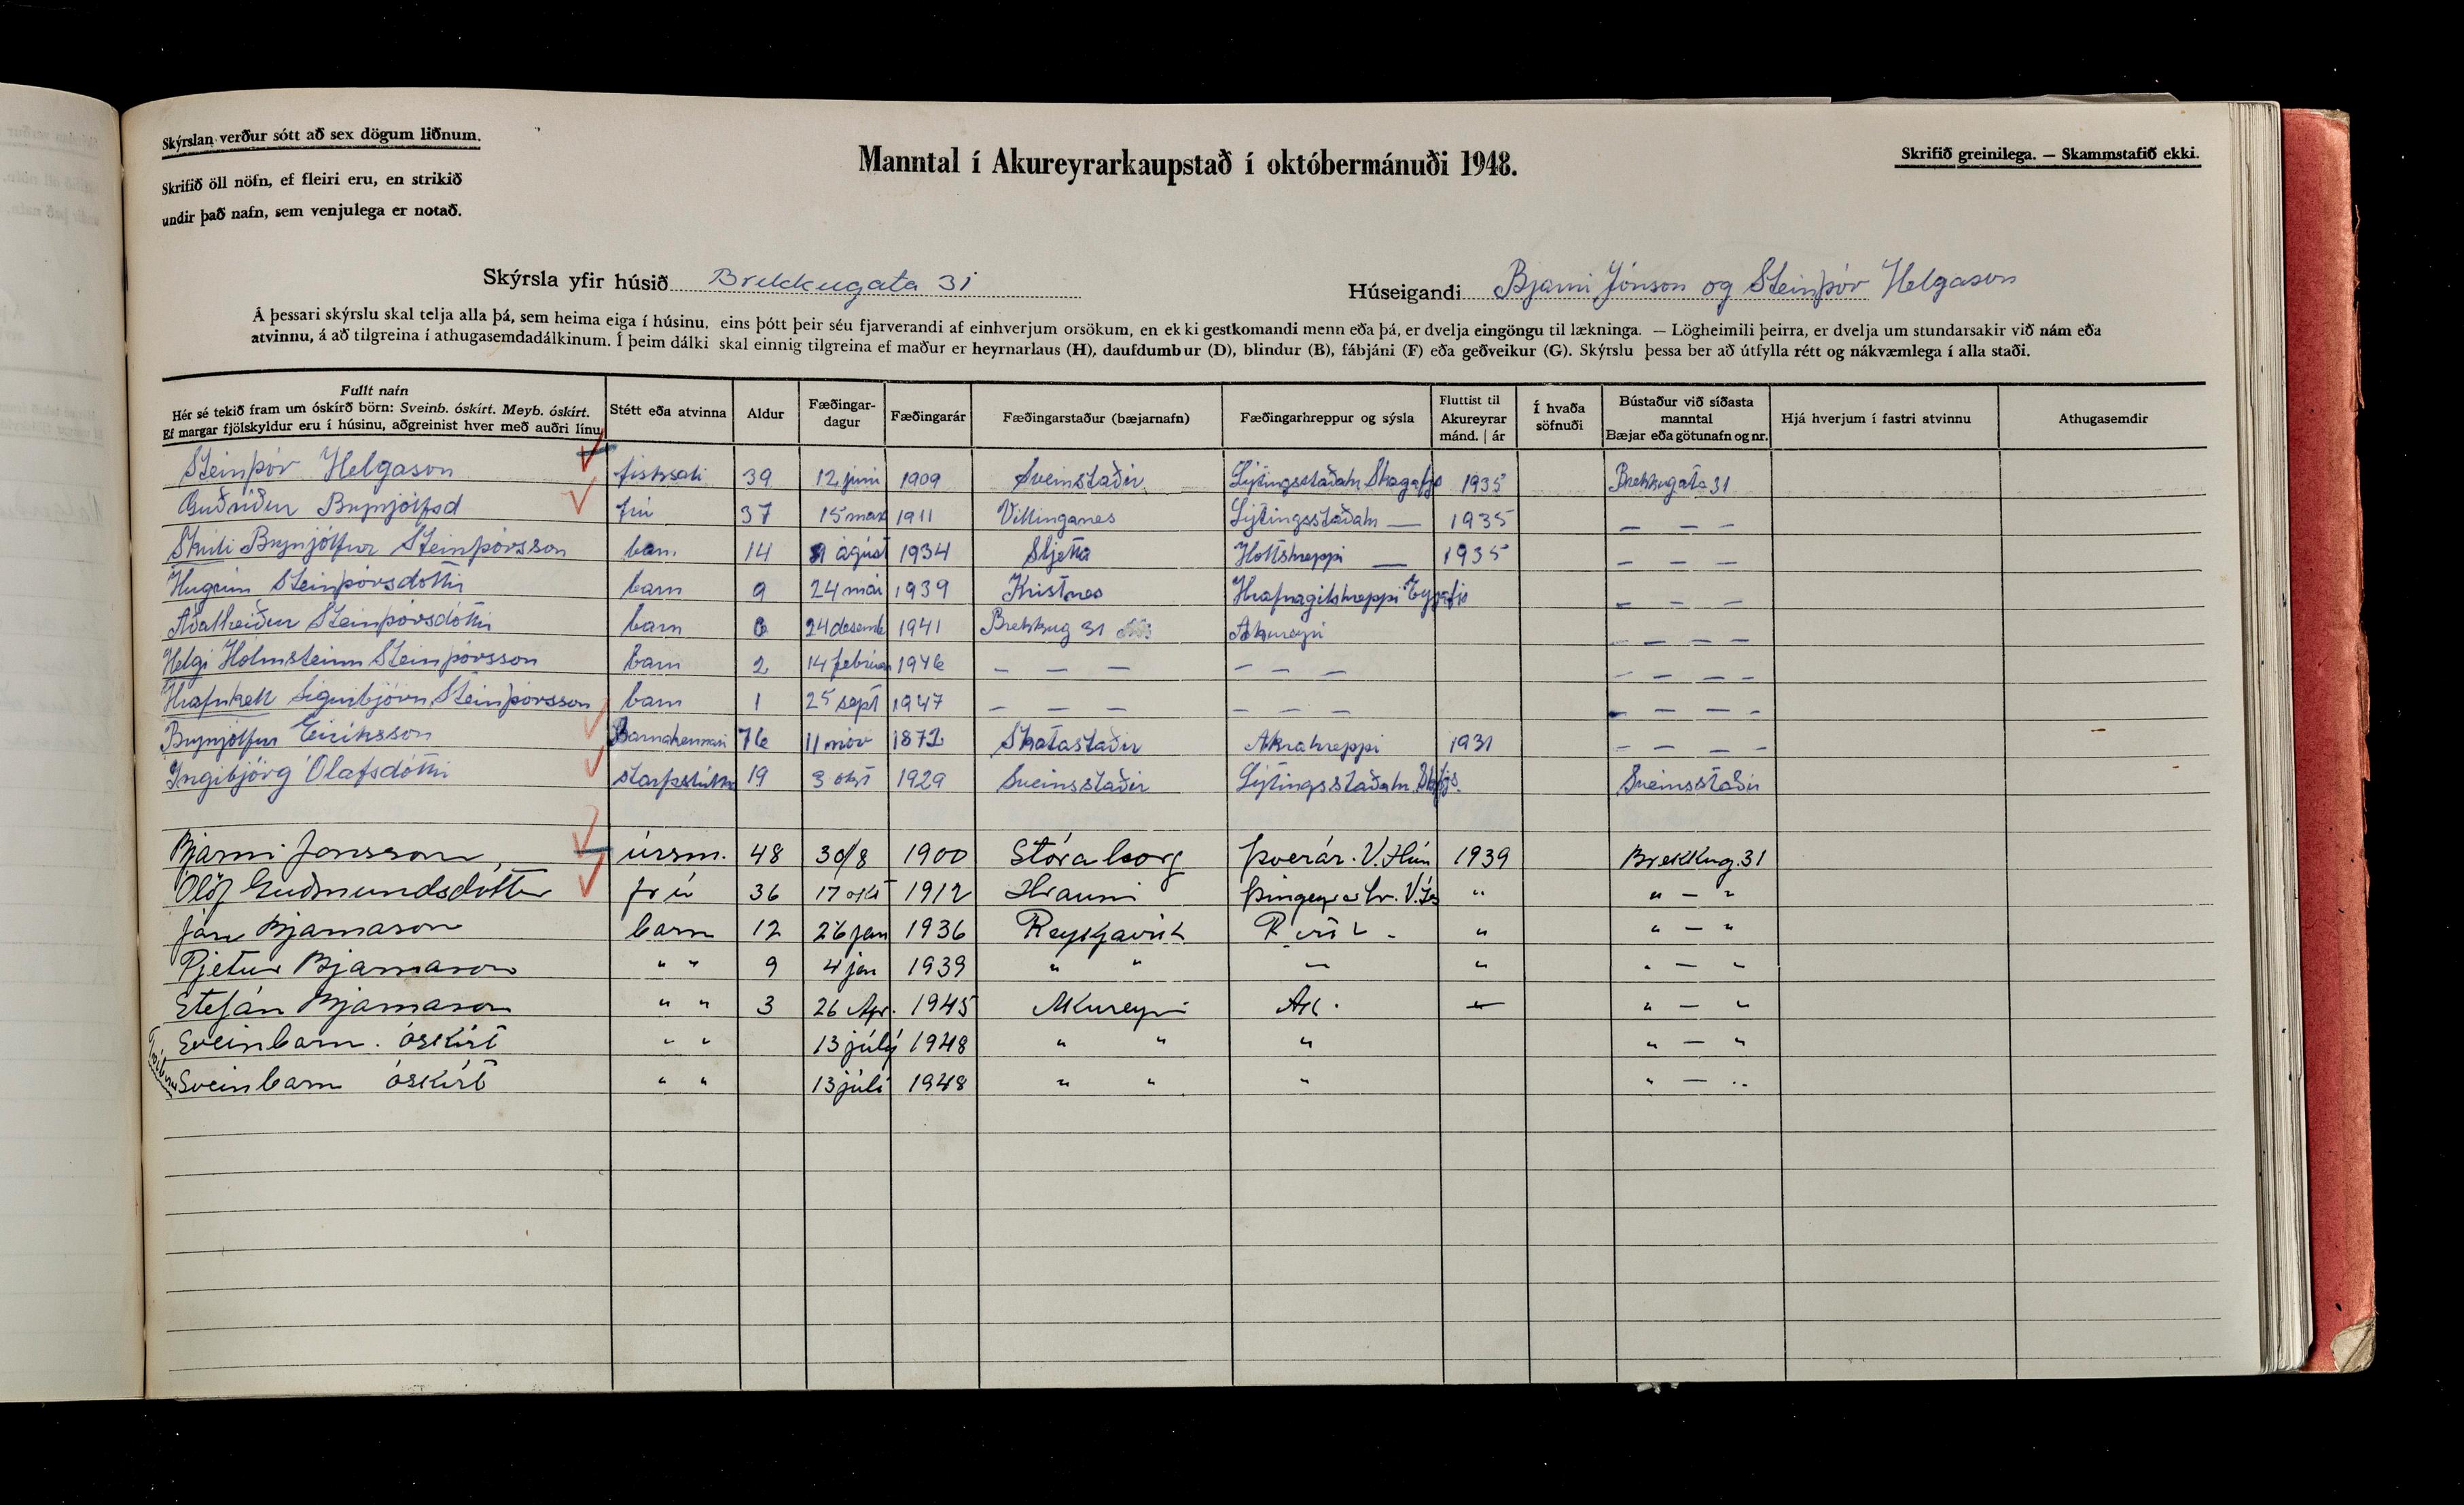 Skýrslan verður sótt að sex dögum liðnum.
Skrifið öll nöfn, ef fleiri eru, en strikið
undir það nafn, sem venjulega er notað.
Manntal í Akureyrarkaupstað í októbermánuði 1948.
Skrifið greinilega. — Skammstafið ekki.
Skýrsla yfir húsið Brekkugata 31
Húseigandi Bjarni Jónson og Steinþór Helgason
Á þessari skýrslu skal telja alla þá, sem heima eiga í húsinu, eins þótt þeir séu fjarverandi af einhverjum orsökum, en ekki gestkomandi menn eða þá, er dvelja eingöngu til lækninga. — Lögheimili þeirra, er dvelja um stundarsakir við nám eða
atvinnu, á að tilgreina í athugasemdadálkinum. Í þeim dálki skal einnig tilgreina ef maður er heyrnarlaus (H), daufdumbur (D), blindur (B), fábjáni (F) eða geðveikur (G). Skýrslu þessa ber að útfylla rétt og nákvæmlega í alla staði.
Fullt nafn
Hér sé tekið fram um óskírð börn: Sveinb. óskírt. Meyb. óskírt.
Ef margar fjölskyldur eru í húsinu, aðgreinist hver með auðri línu
Stétt eða atvinna
Aldur
Fæðingar-
dagur
Fæðingarár
Fæðingarstaður (bæjarnafn)
Fæðingarhreppur og sýsla
Fluttist til
Akureyrar
mánd. | ár
Í hvaða
söfnuði
Bústaður við síðasta
manntal
Bæjar eða götunafn og nr.
Hjá hverjum í fastri atvinnu
Athugasemdir
Steinþór Helgason fisksali 39 12 júni 1909 Sveinstaðir Lýtingsstaðahr Skagafjs 1935 Brekkugata 31
Guðríður Brynjólfsd frú 37 15 mars 1911 Villinganes Lýtingsstaðahr — 1935 — — —
Skúli Brynjólfur Steinþórsson barn 14 ágúst 1934 Sljetta Holtshreppi — 1935 — — —
Hugrún Steinþórsdóttir barn 9 24 mai 1939 Kristnes Hrafnagilshreppi Eyjafjs — — —
Aðalheiður Steinþórsdóttir barn 6 24 desemb 1941 Brekkug 31 Akureyri — — — —
Helgi Hólmsteinn Steinþórsson barn 2 14 febrúar 1946 — — — — — — — — — —
Hrafnkell Sigurbjörn Steinþórsson barn 1 25 sept 1947 — — — — — — — — — —
Brynjólfur Eiríksson Barnakennari 76 11 nóv 1872 Skatastaðir Akrahreppi 1931 — — — —
Ingibjörg Ólafsdóttir starfstúlka 19 3 okt 1929 Sveinsstaðir Lýtingsstaðahr. Skfjs. Sveinsstaðir
Bjarni Jónsson, úrsm. 48 30/8 1900 Stóraborg Þverár. V. Hún 1939 Brekkug. 31
Ólöf Guðmundsdóttir frú 36 17 okt 1912 Hrauni Þingeyrarhr. V. Ís " " — "
Jón Bjarnason barn 12 26 jan 1936 Reykjavík Rvík - " " — "
Pjetur Bjarnason " " 9 4 jan 1939 " " — " " — "
Stefán Bjarnason " " 3 26 Apr. 1945 Akureyri Ak. — " — "
Sveinbarn. óskírt " " 13 júlý 1948 " " " " — "
Sveinbarn óskírt " " 13 júlí 1948 " " " " — "